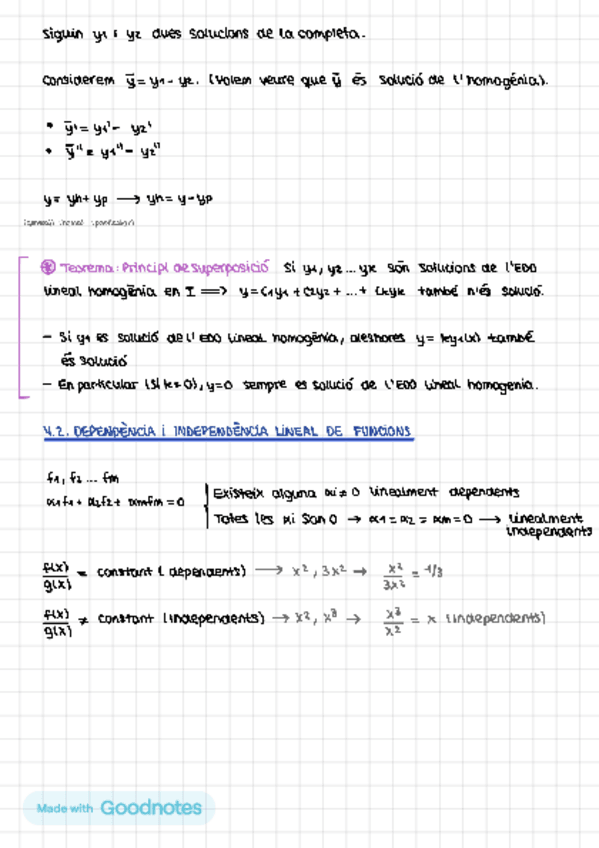 Siguin y1 i y2 dues solucions de la completa.
Considerem ȳ = y1 - y2. (Volem veure que ȳ és solució de l'homogénia).
• ȳ' = y1' - y2'
• ȳ'' = y1'' - y2''
y = yh + yp → yh = y - yp
⊛ Teorema: Principi de superposició Si y1, y2 ... yk són solucions de l'EDO
lineal homogènia en I ⟹ y = C1y1 + C2y2 + ... + Ckyk també n'és solució.
- Si y1 es solució de l'EDO lineal homogènia, aleshores y = ky1(x) també
és solució
- En particular (si k = 0), y = 0 sempre es solució de l'EDO lineal homogenia.
4.2. DEPENDÈNCIA i INDEPENDÈNCIA LINEAL DE FUNCIONS
f1, f2 ... fm
α1f1 + α2f2 + αmfm = 0
Existeix alguna αi ≠ 0 linealment dependents
Totes les αi són 0 → α1 = α2 = αm = 0 → linealment
independents
f(x)/g(x) = constant (dependents) → x², 3x² → x²/3x² = 1/3
f(x)/g(x) ≠ constant (independents) → x², x³ → x³/x² = x (independents)
Made with Goodnotes